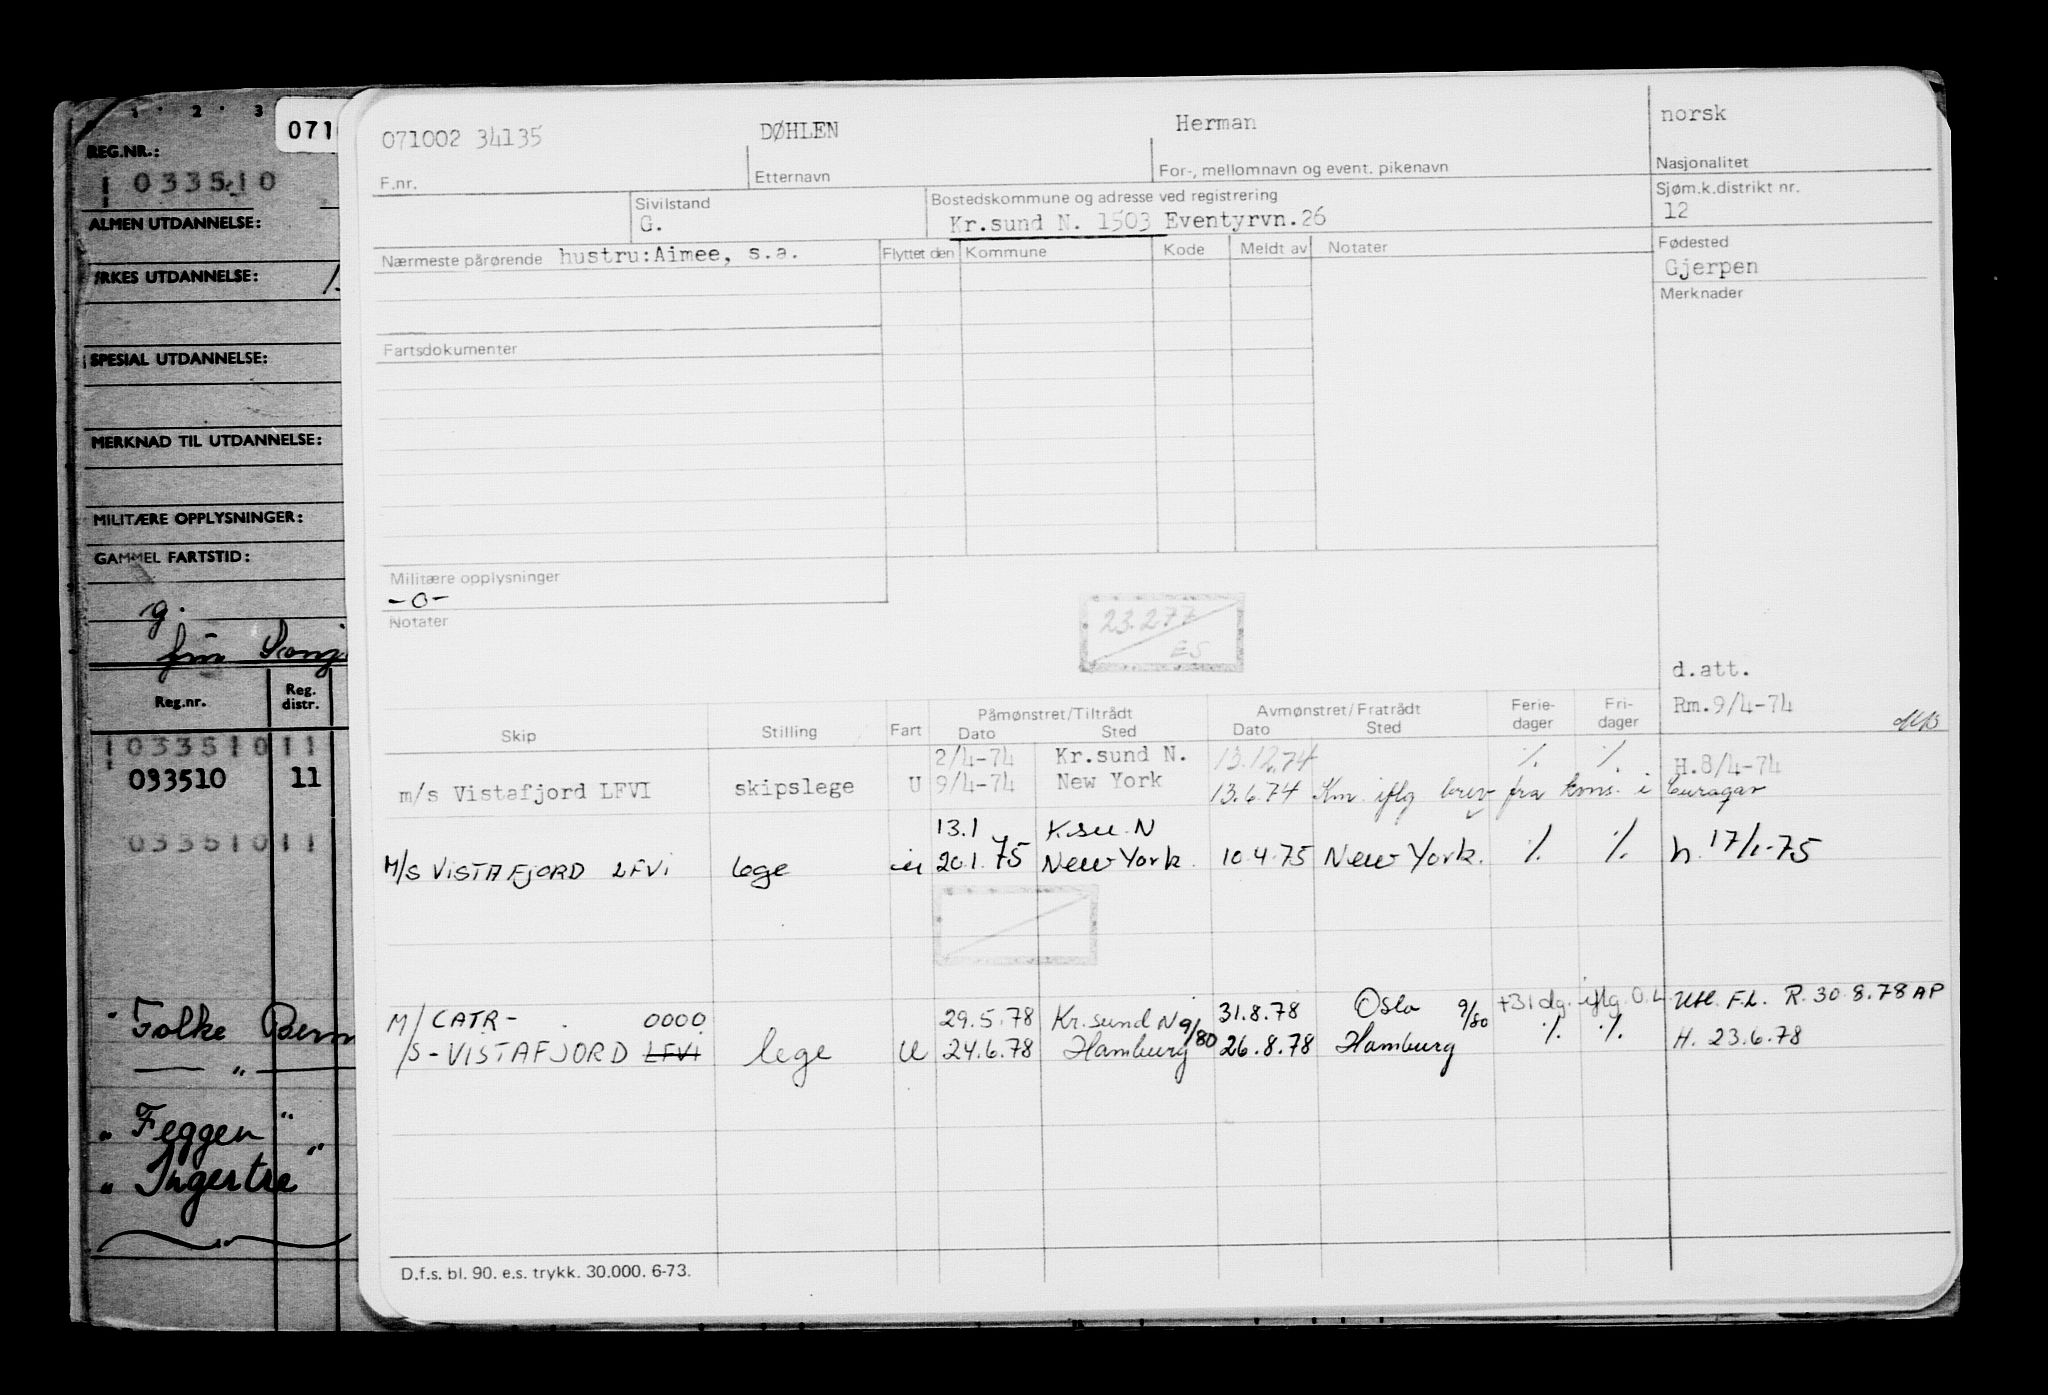 1 2 3
071
REG.NR.:
033510
ALMEN UTDANNELSE:
YRKES UTDANNELSE:
SPESIAL UTDANNELSE:
MERKNAD TIL UTDANNELSE:
MILITÆRE OPPLYSNINGER:
GAMMEL FARTSTID:
g.
Reg.nr. Reg. distr.
033510 11
093510 11
033510 11
" Folke Bern
— " —
" Feggen "
" Ingertre "
071002 34135 DØHLEN Herman norsk
F.nr. Etternavn For-, mellomnavn og event. pikenavn Nasjonalitet
Sivilstand Bostedskommune og adresse ved registrering Sjøm.k.distrikt nr.
G. Kr.sund N. 1503 Eventyrvn.26 12
Nærmeste pårørende hustru:Aimee, s.a. Flyttet den Kommune Kode Meldt av Notater Fødested
Gjerpen
Merknader
Fartsdokumenter
Militære opplysninger
-0-
Notater
23.277
ES
d.att.
Rm.9/4-74
Skip Stilling Fart Påmønstret/Tiltrådt Avmønstret/Fratrådt Ferie-dager Fri-dager
Dato Sted Dato Sted
2/4-74 Kr.sund N. 13.12.74 ./. ./. H.8/4-74
m/s Vistafjord LFVI skipslege U 9/4-74 New York 13.6.74 Km. iflg brev fra kons. i Curaçao
13.1 K.su. N
M/S VISTAFJORD LFVi lege u 20.1.75 New York. 10.4.75 New York. ./. ./. h.17/1-75
M/ CATR- . 0000 29.5.78 Kr.sund N 9/80 31.8.78 Oslo 9/80 +31 dg. iflg. O.L. Utl. F.L. R. 30.8.78 AP
/S - VISTAFJORD LFVi lege U 24.6.78 Hamburg 26.8.78 Hamburg ./. ./. H. 23.6.78
D.f.s. bl. 90. e.s. trykk. 30.000. 6-73.